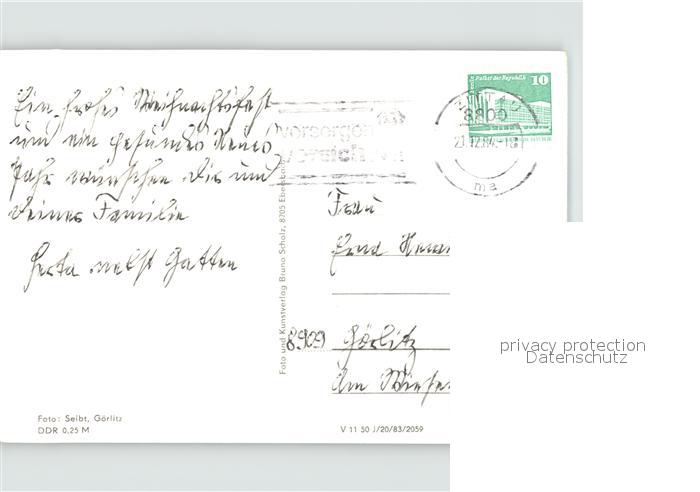 Ein frohes Weihnachtsfest
und ein gesundes Neues
Jahr wünschen Dir und
Deiner Familie
Herta nebst Gatten
Foto: Seibt, Görlitz
DDR 0,25 M
Foto und Kunstverlag Bruno Scholz, 8705 Ebersbach
V 11 50 J/20/83/2059
Palast der Republik
10
ZITTAU
8800
21.12.84
ma
vorsorgen
Frau
8909 Görlitz
Am
privacy protection
Datenschutz